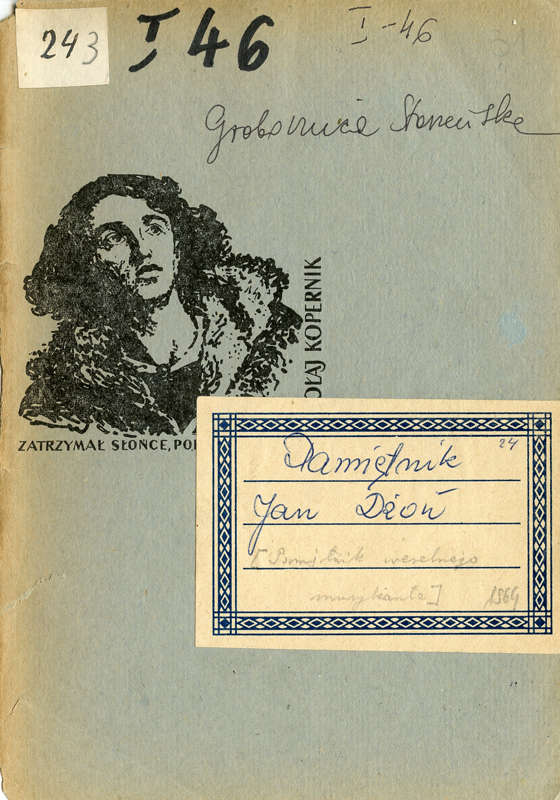 243
I 46
I-46
Grobownica Stareńska
MIKOŁAJ KOPERNIK
ZATRZYMAŁ SŁOŃCE, POR
24
Pamiętnik
Jan Dżoń
[Pamiętnik weselnego
muzykanta]
1964